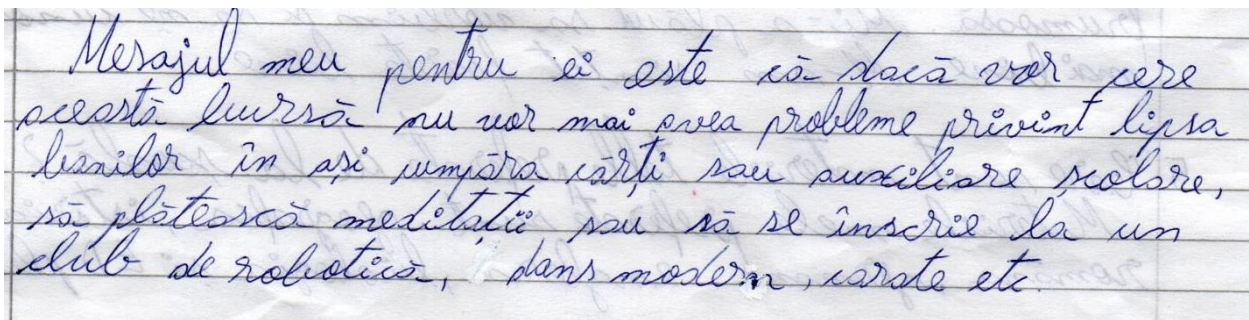 Mesajul meu pentru ei este că dacă vor cere
această bursă nu vor mai avea probleme privint lipsa
banilor în ași cumpăra cărți sau auxiliare școlare,
să plătească meditații sau să se înscrie la un
club de robotică, dans modern, carate etc.